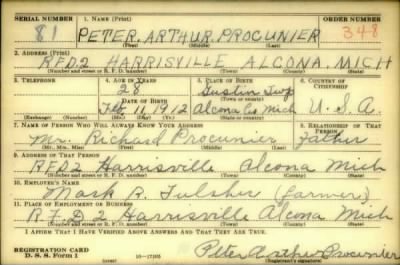 SERIAL NUMBER 1. NAME (Print) ORDER NUMBER
81 PETER ARTHUR PROCUNIER 348
(First) (Middle) (Last)
2. ADDRESS (Print)
R.F.D.2 HARRISVILLE ALCONA, MICH
(Number and street or R. F. D. number) (Town) (County) (State)
3. TELEPHONE 4. AGE IN YEARS 5. PLACE OF BIRTH 6. COUNTRY OF CITIZENSHIP
28 Twp
DATE OF BIRTH (Town or county)
Feb 11, 1912 Alcona Co Mich U.S.A.
(Exchange) (Number) (Mo.) (Day) (Yr.) (State or country)
7. NAME OF PERSON WHO WILL ALWAYS KNOW YOUR ADDRESS 8. RELATIONSHIP OF THAT PERSON
Mr. Richard Procunier Father
(Mr., Mrs., Miss) (First) (Middle) (Last)
9. ADDRESS OF THAT PERSON
RFD2 Harrisville Alcona Mich
(Number and street or R. F. D. number) (Town) (County) (State)
10. EMPLOYER'S NAME
R. (Farmer)
11. PLACE OF EMPLOYMENT OR BUSINESS
R.F.D 2 Harrisville Alcona Mich
(Number and street or R. F. D. number) (Town) (County) (State)
I AFFIRM THAT I HAVE VERIFIED ABOVE ANSWERS AND THAT THEY ARE TRUE.
REGISTRATION CARD
D. S. S. Form 1 Peter Arthur Procunier
(Registrant's signature)